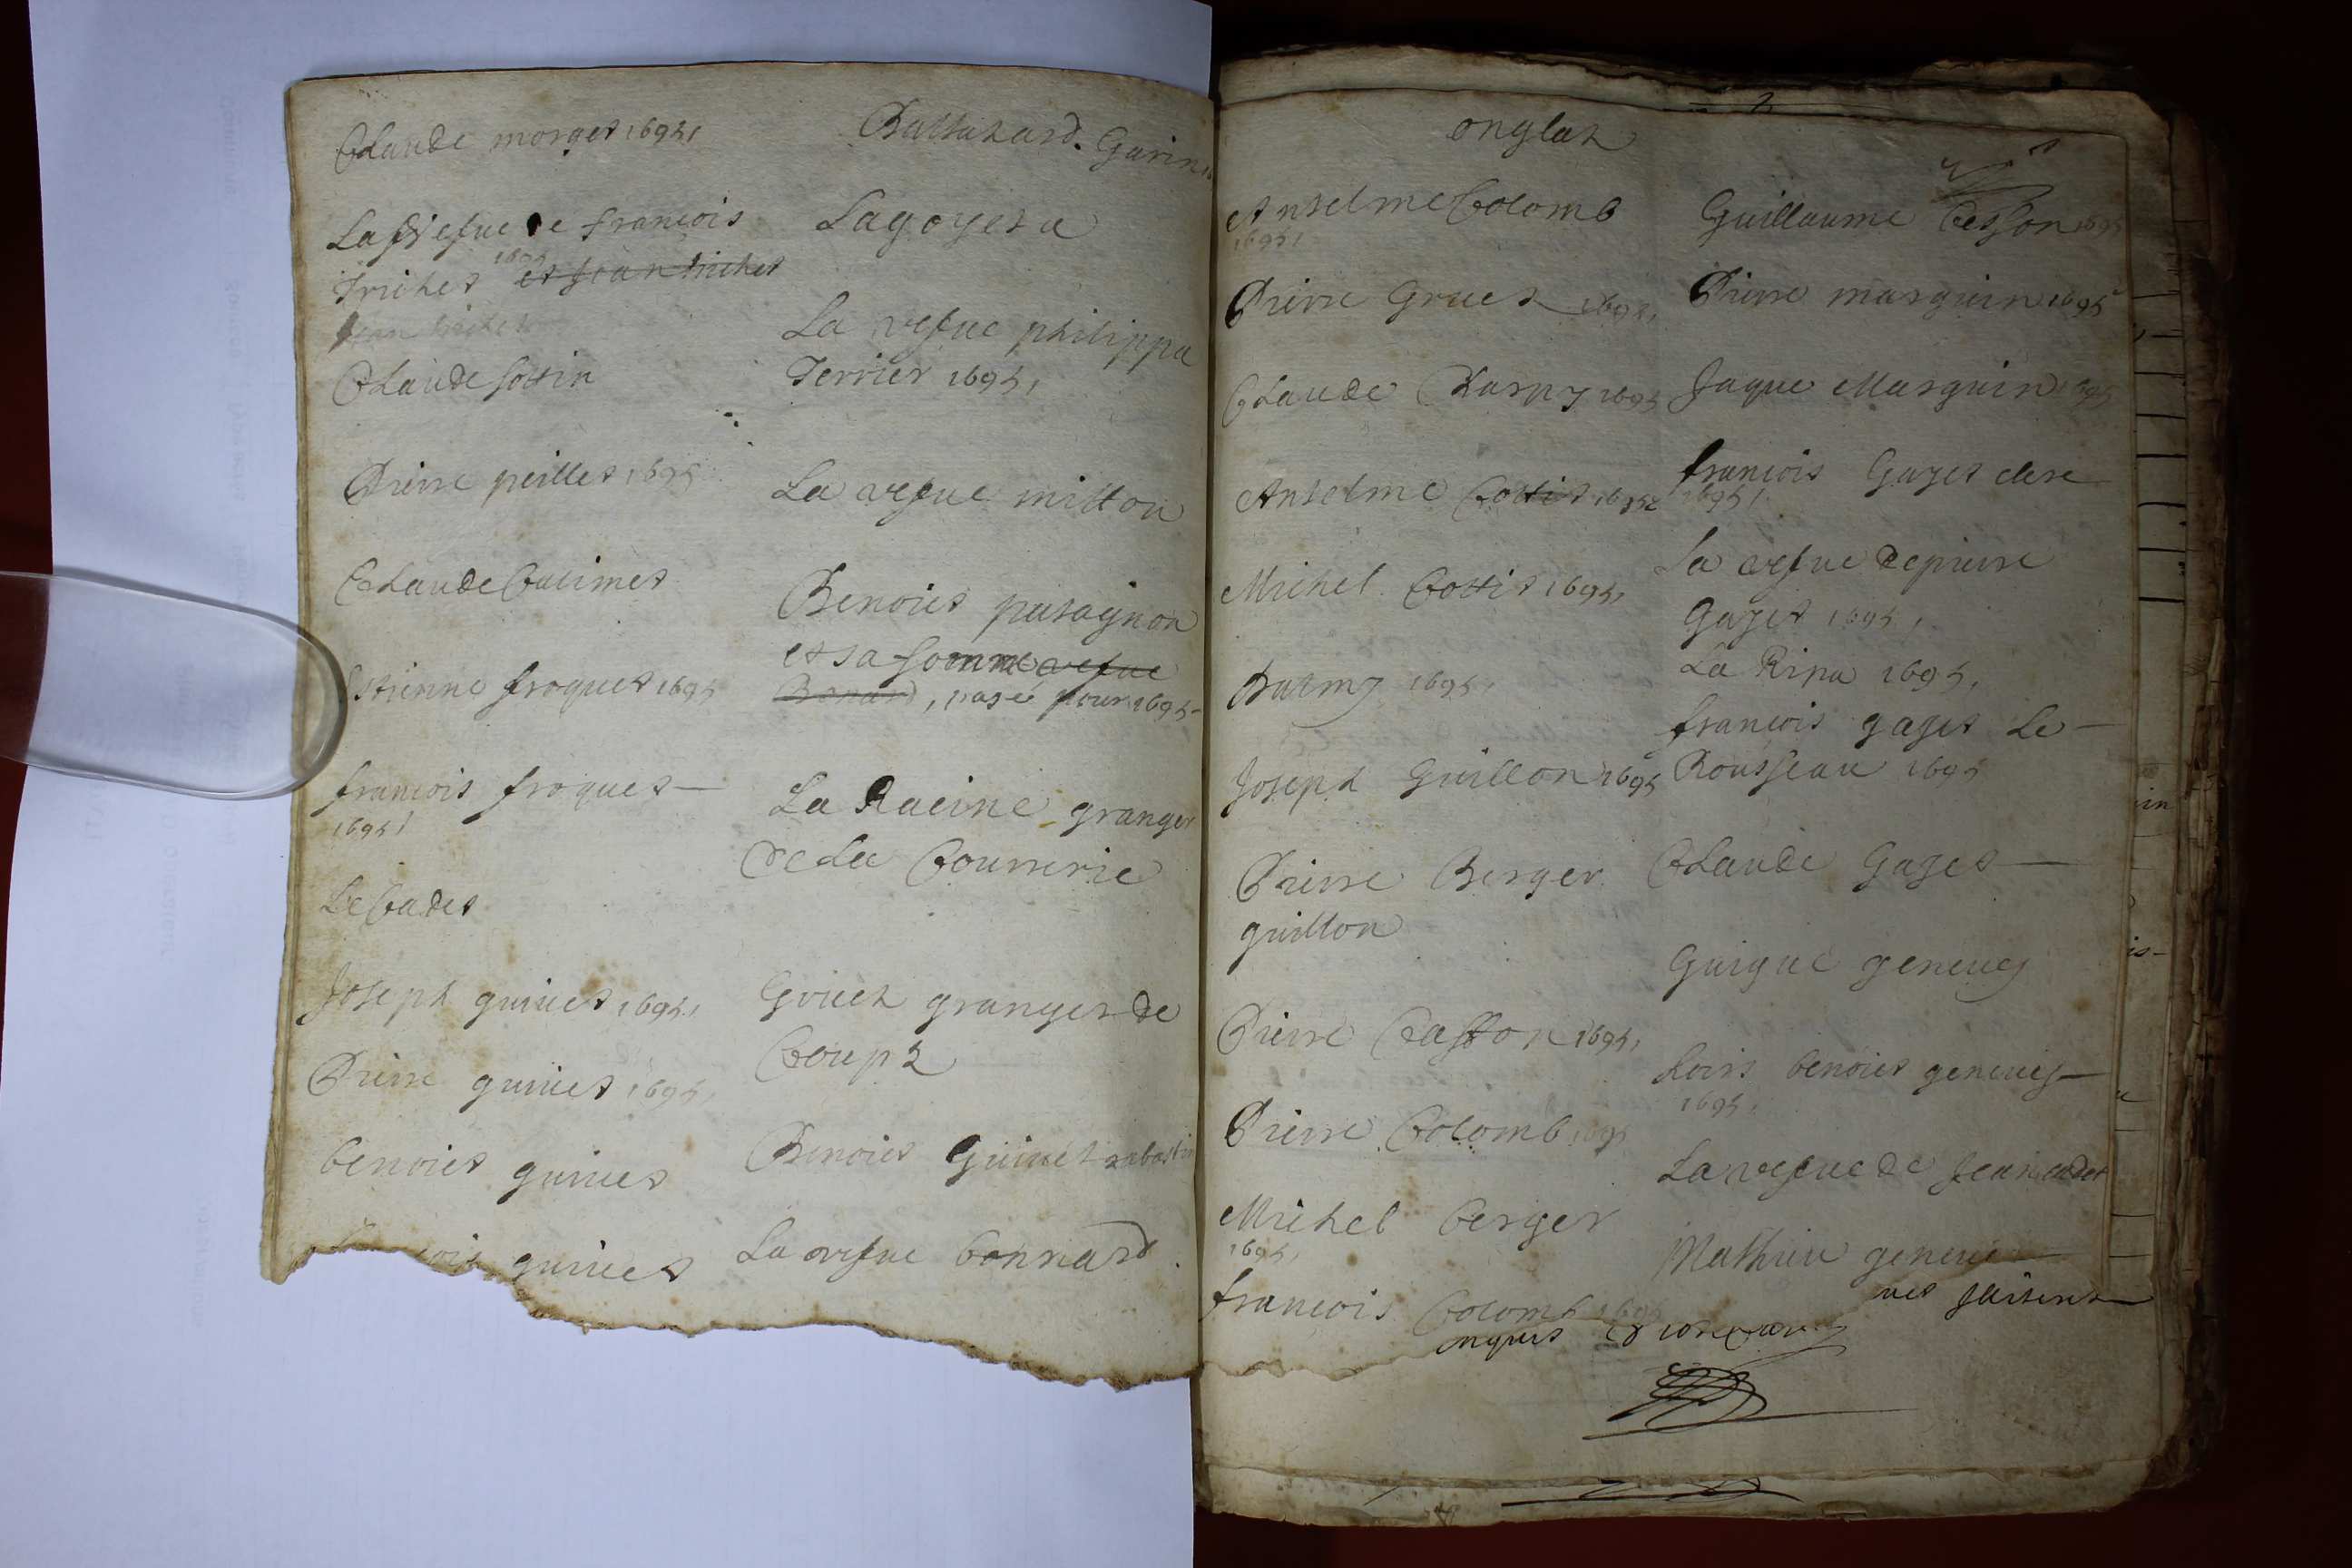 Claude morget 1695,
La vefue de francois
1695
trichet et jean trichet
jean trichet
Claude sottin
Pierre peillet 1695
Claude Cacimet
Estienne froquet 1695
francois froquet
1695,
Le Cadet
Joseph guinet 1695,
Pierre guinet 1695,
benoiet guinet
guinet
Balthazard Garin
Lagoyeta
La vefue philippa
Terrier 1695,
La vefue mitton
Benoiet patagnon
et sa somme vefue
Bonard, payé pour 1695
La Racine granger
de La Courrerie
granger de
Coupz
Benoiet Guinet
La vefue bonnard
onglas
Anselme Colomb
1695,
Pierre Gruet 1695,
Claude Darny 1695
Anselme Cottit 1695
Michel Cottit 1695,
Darny 1695,
Joseph Guillon 1695
Pierre Berger
guillon
Pierre Caston 1695,
Pierre Colomb 1695
Michel berger
1695,
francois Colomb 1695
Guillaume besson 1695
Pierre marguin 1695
Jaque Marguin 1695
francois Gaget clerc
1695,
La vefue de pierre
Gaget 1695,
La Ripa 1695,
francois gaget Le
Rousseau 1695
Claude Gaget
Guigue geneuey
Lois benoiet geneuey
1695,
La vefue de Jean cadet
Mathieu geneue